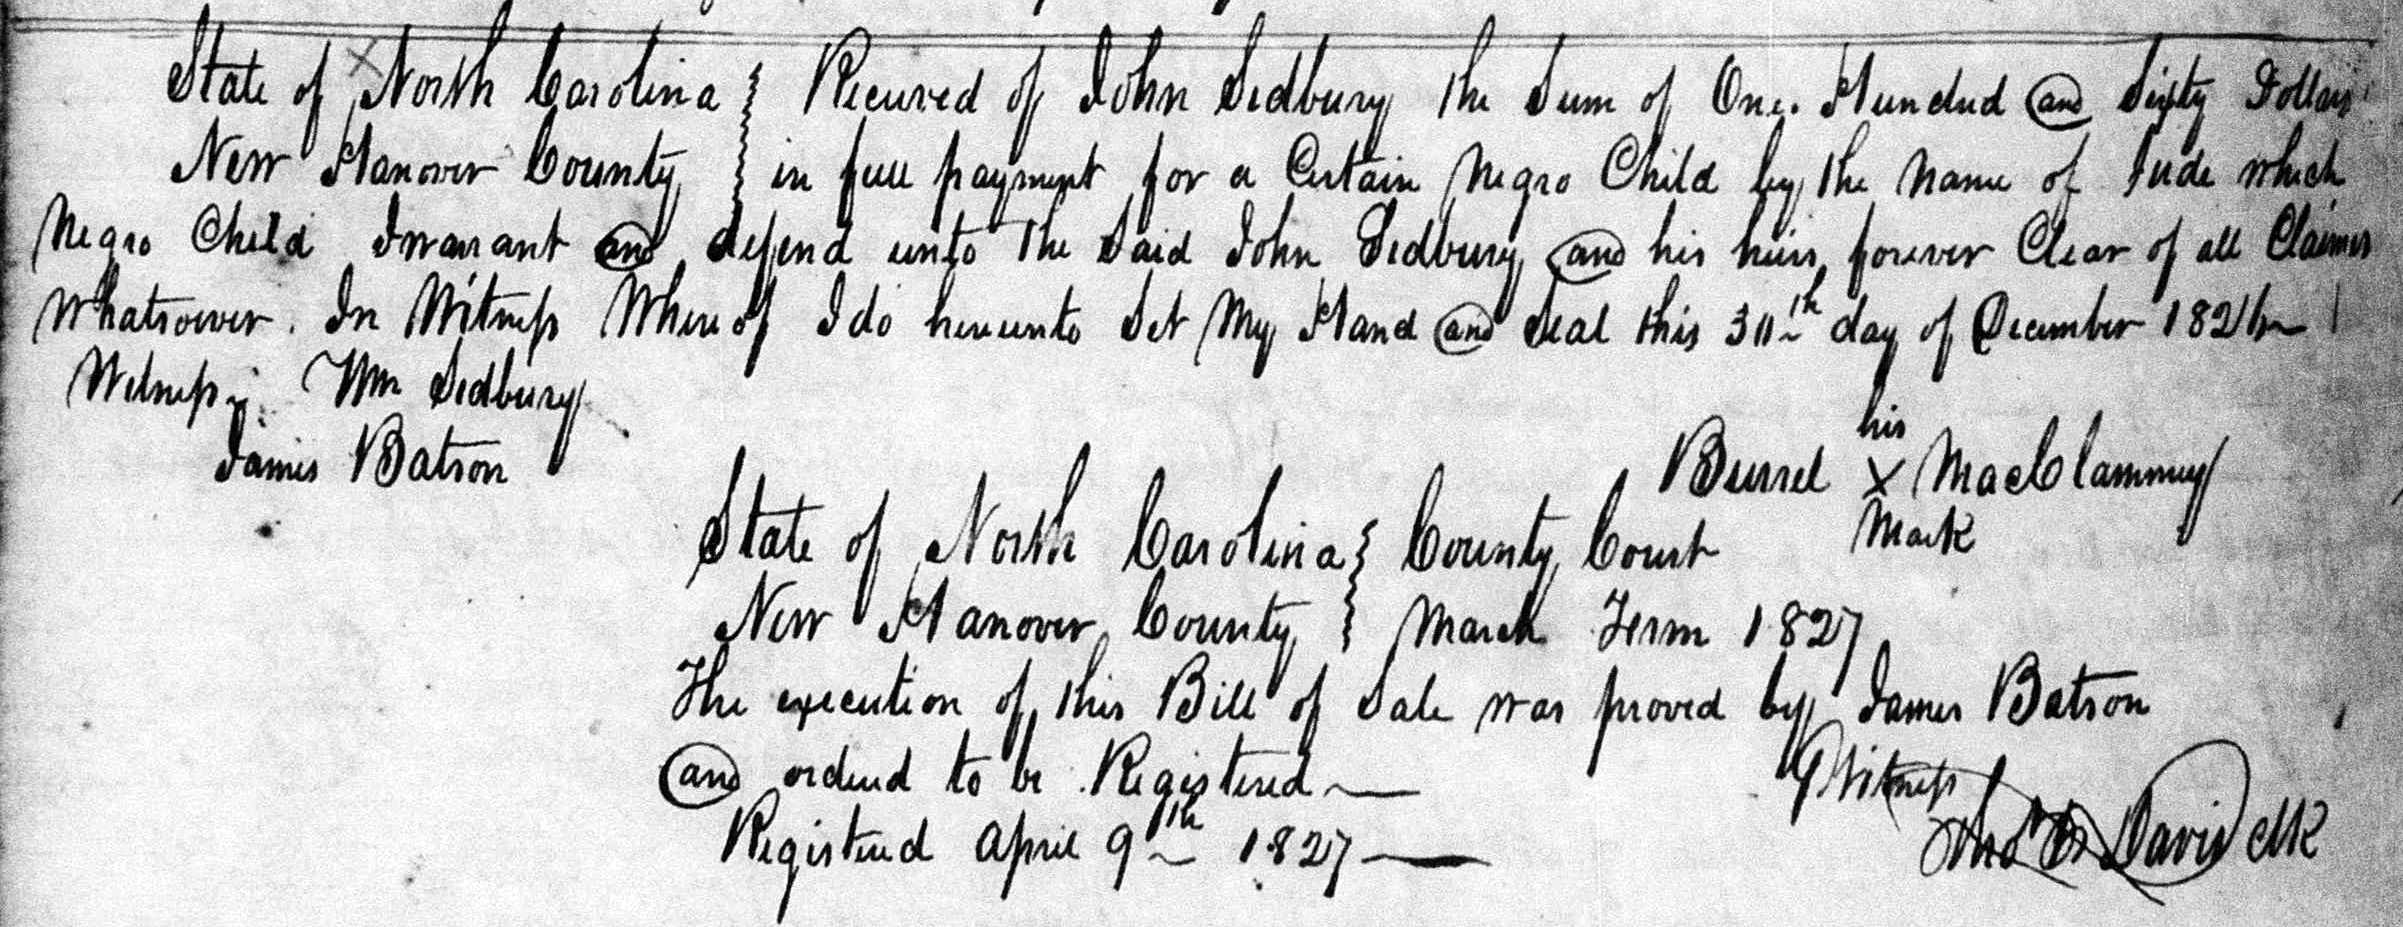 State of North Carolina } Received of John Sedbury the Sum of One Hundred and Sixty Dollars
New Hanover County } in full payment for a Certain Negro Child by the name of Jude which
Negro Child I warrant and defend unto the Said John Sedbury and his heirs forever Clear of all Claims
Whatsoever. In Witness Whereof I do hereunto Set My Hand and Seal this 30th day of December 1826
Witness Wm Sedbury
his
James Batson Burrel X MacClammey
Mark
State of North Carolina } County Court
New Hanover County } March Term 1827
The execution of this Bill of Sale was proved by James Batson
and ordered to be Registered — Witness
Registered April 9th 1827 — Davis Clk